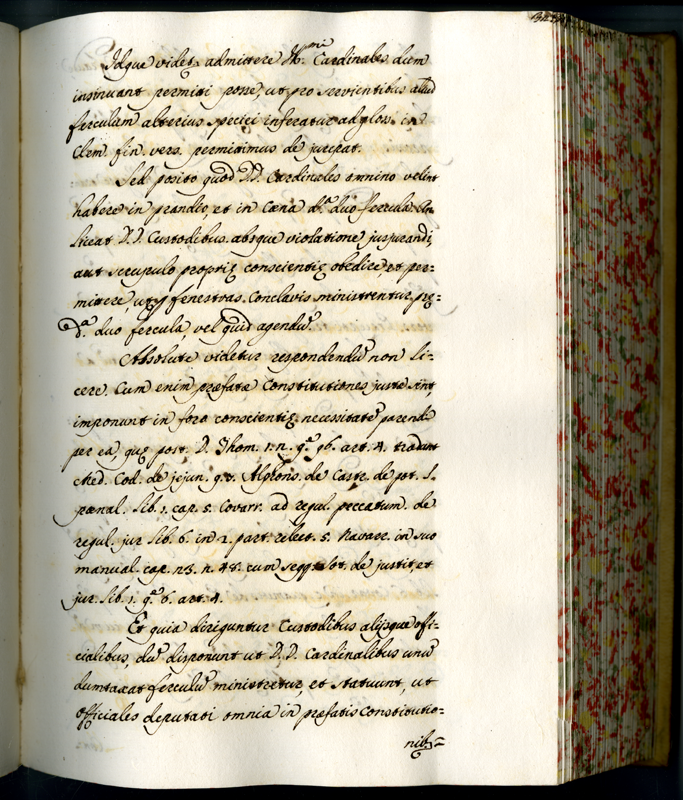 Idque videt., admittere Ill.mi Cardinales dum
insinuant permitti posse, ut pro servientibus aliud
ferculum alterius speciei inferatur ad glos. in
Clem. fin. vers. permittimus de jurejat.
Sed posito quod DD. Cardinales omnino velint
habere in prandio, et in Cæna d.a duo fercula An
liceat D.D. Custodibus absque violatione jusjurandi,
aut scrupulo proprię conscientię obedire, et per=
mittere, ut p fenestras Conclavis ministrentur pę=
d.a duo fercula, vel quid agendũ.
Absolute videtur respondendũ non li=
cere. Cum enim præfatæ Constitutiones justæ sint,
imponunt in foro conscientię necessitatẽ parendi
per ea, quę post. D. Thom. 1. n. q.a 96. art. 4. tradunt
Med. Cod. de jejun. q. 3. Alphons. de Castr. de pot. l.
pœnal. lib. 1. cap. 5. Covarr. ad regul. peccatum. de
regul. jur lib. 6. in 2. part. relect. 5. Navarr. in suo
manual. cap. n3. n. 48. cum seqq. Sot. de justit. et
jur. lib. 1. q.a 6. art. 4.
Et quia diriguntur Custodibus alijsque offi=
cialibus, dũ disponunt ut D.D. Cardinalibus unũ
dumtaxat ferculũ ministretur, et statuunt, ut
officiales deputati omnia in præfatis Constitutio=
nib=